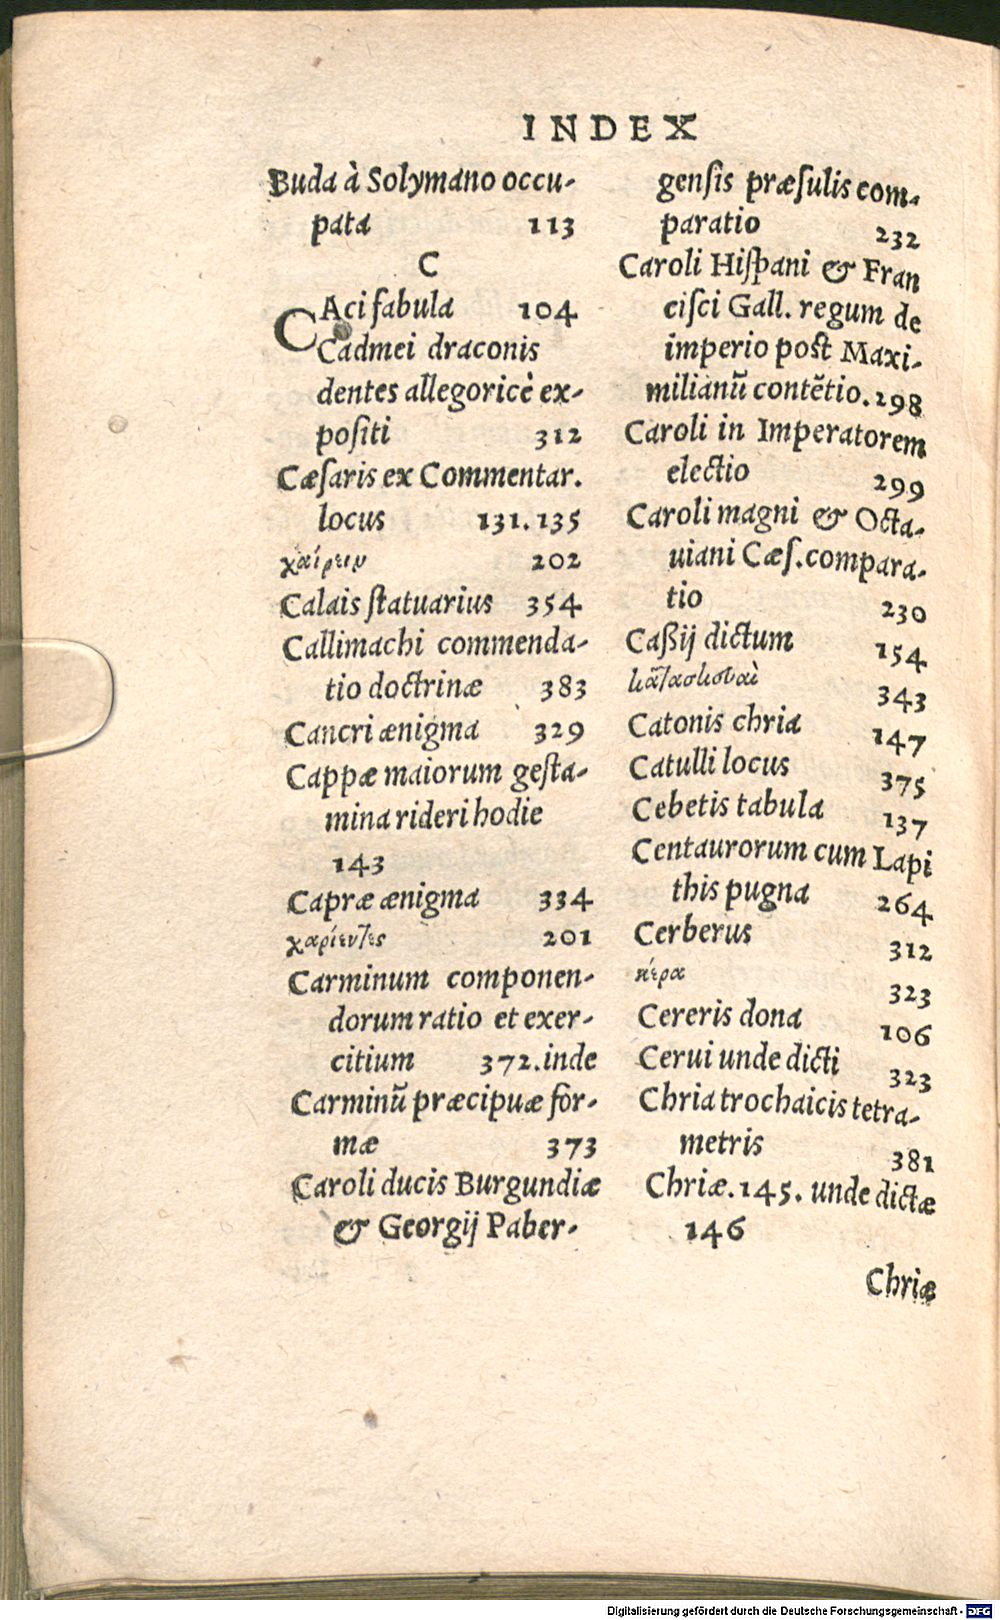 INDEX
Buda à Solymano occu-
pata 113
C
CAci fabula 104
Cadmei draconis
dentes allegoricè ex-
positi 312
Cæſaris ex Commentar.
locus 131.135
χαίρειν 202
Calais ſtatuarius 354
Callimachi commenda-
tio doctrinæ 383
Cancri ænigma 329
Cappæ maiorum geſta-
mina rideri hodie
143
Capræ ænigma 334
χαρίεντες 201
Carminum componen-
dorum ratio et exer-
citium 372.inde
Carminũ præcipuæ for-
mæ 373
Caroli ducis Burgundiæ
& Georgij Paber-
genſis præſulis com-
paratio 232
Caroli Hiſpani & Fran
ciſci Gall. regum de
imperio post Maxi-
milianũ contẽtio. 298
Caroli in Imperatorem
electio 299
Caroli magni & Octa-
uiani Cæſ. compara-
tio 230
Caßij dictum 154
343
Catonis chria 147
Catulli locus 375
Cebetis tabula 137
Centaurorum cum Lapi
this pugna 264
Cerberus 312
κέρα 323
Cereris dona 106
Cerui unde dicti 323
Chria trochaicis tetra-
metris 381
Chriæ. 145. unde dictæ
146
Chriæ
Digitalisierung gefördert durch die Deutsche Forschungsgemeinschaft - DFG